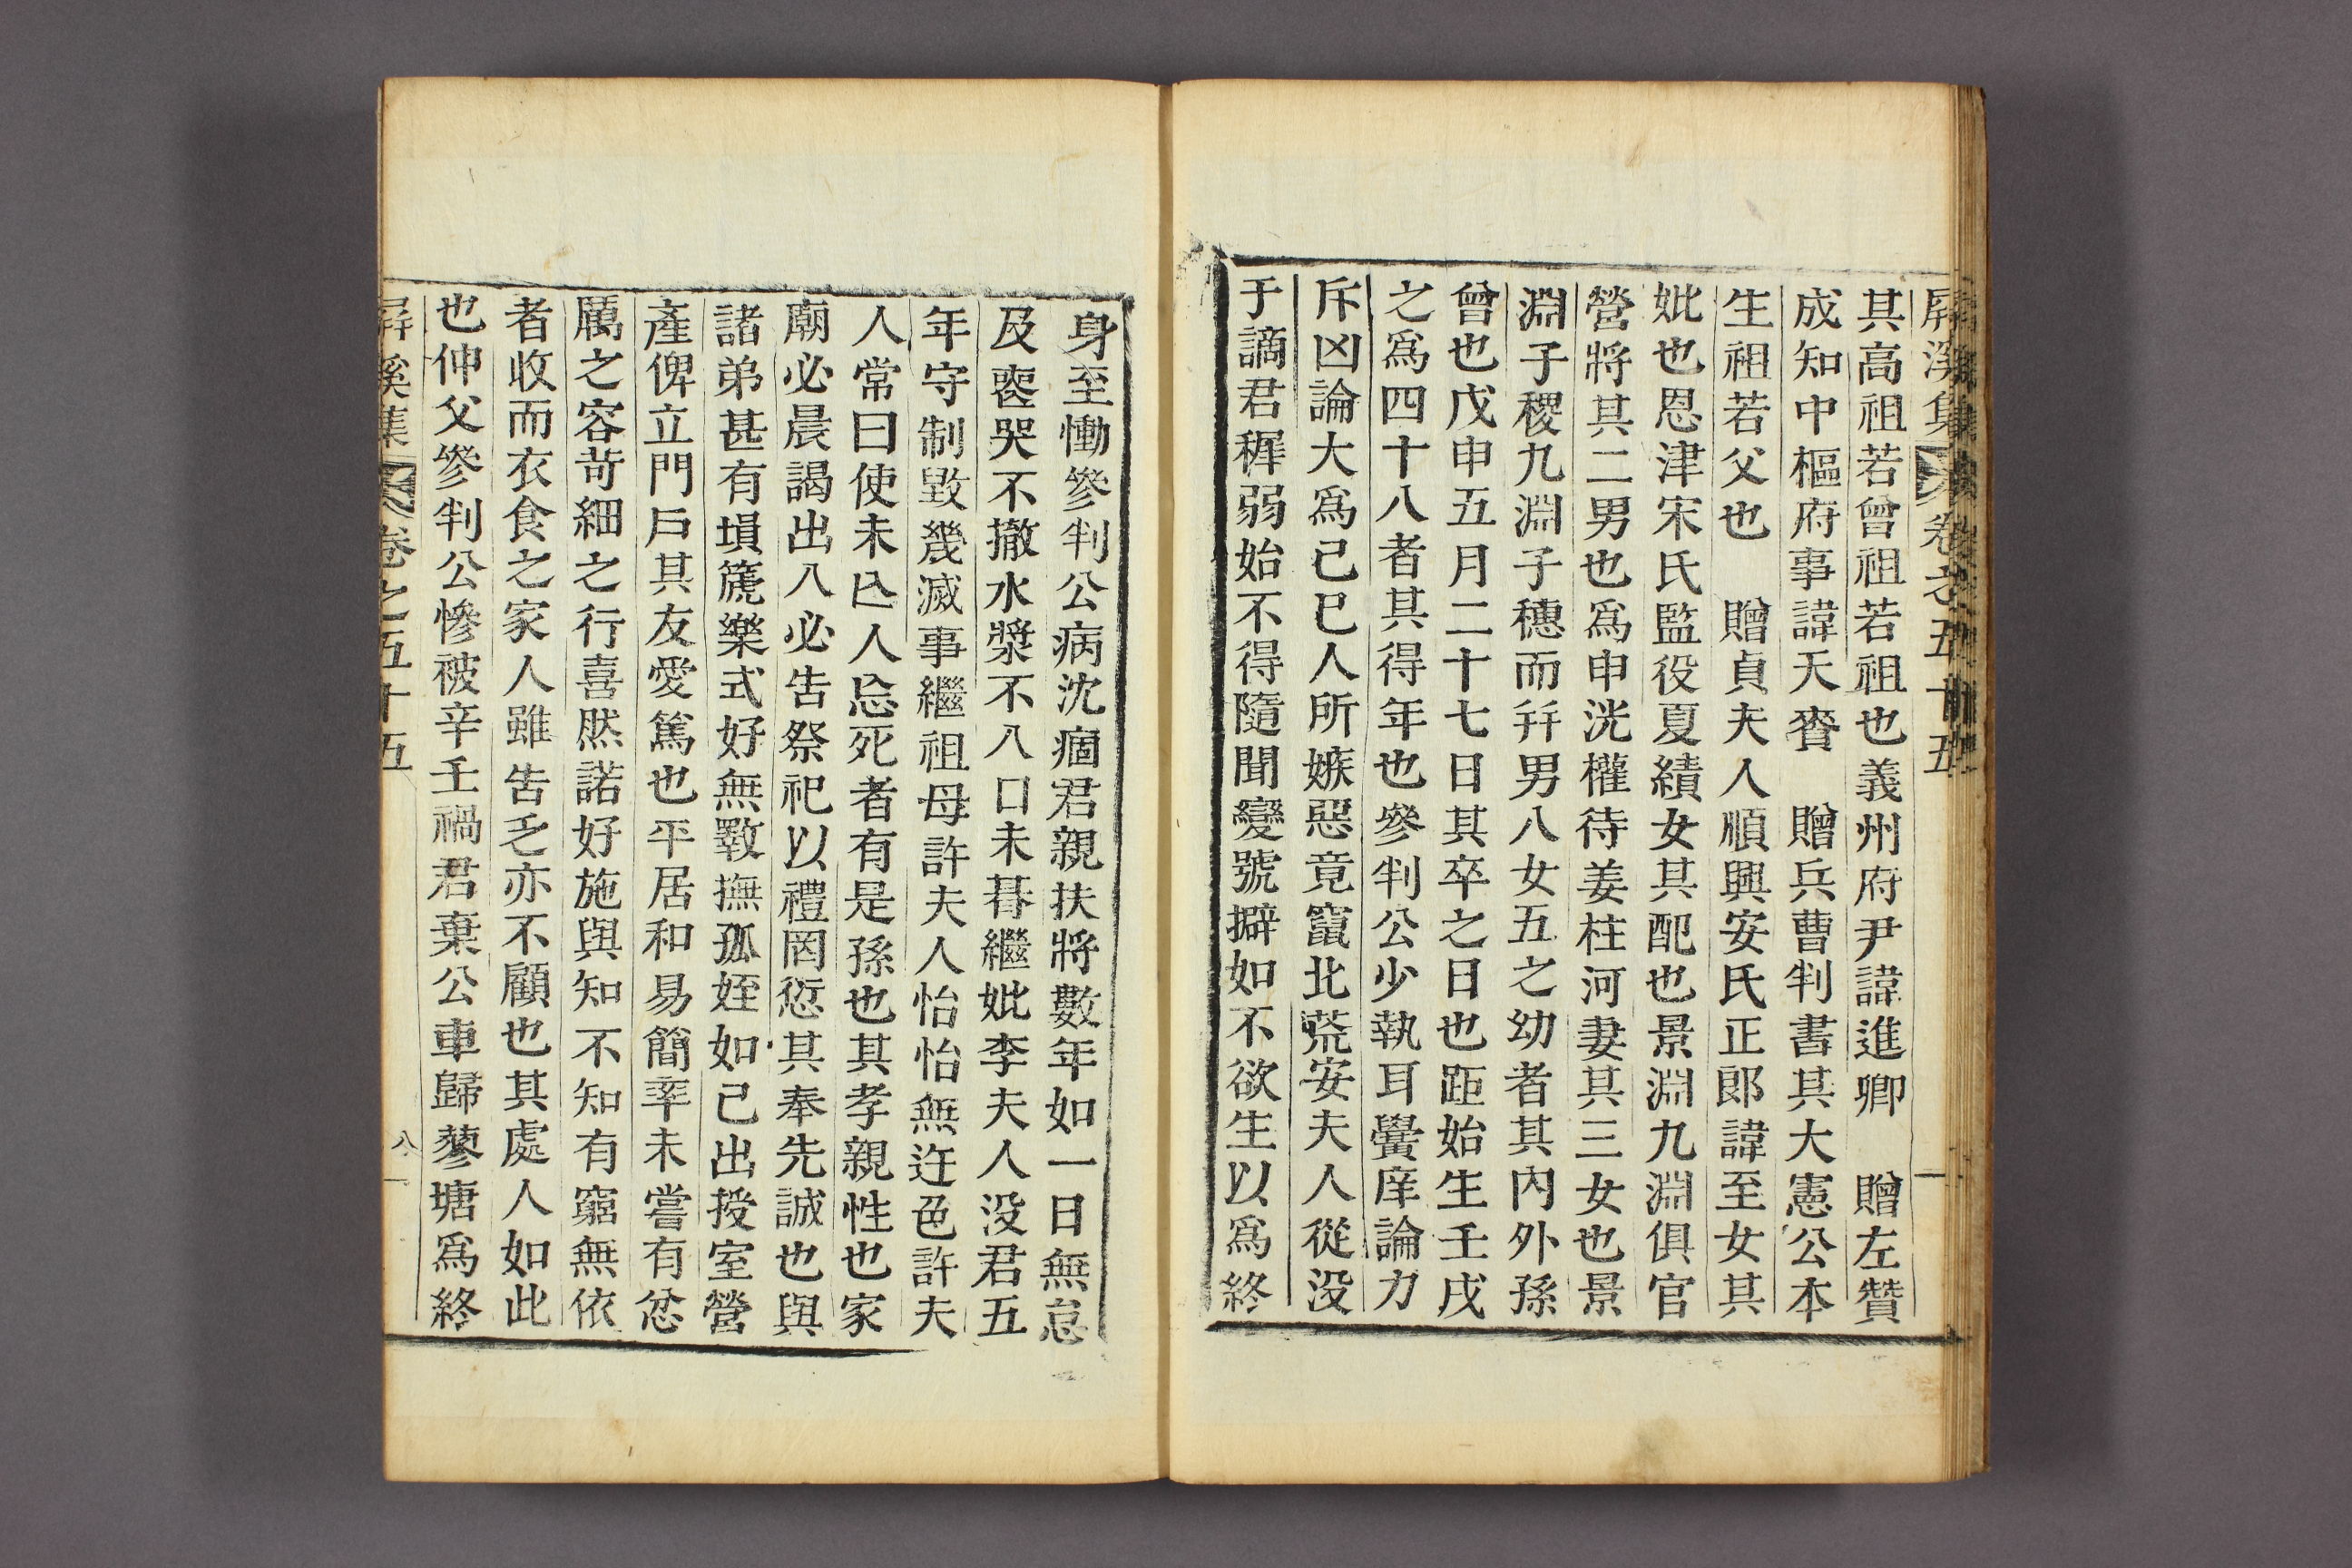 屛溪集 卷之五十五
其高祖若曾祖若祖也義州府尹諱進卿 贈左贊
成知中樞府事諱天賚 贈兵曹判書其大憲公本
生祖若父也 贈貞夫人順興安氏正郎諱至女其
妣也恩津宋氏監役夏績女其配也景淵九淵俱官
營將其二男也爲申洸權待姜柱河妻其三女也景
淵子稷九淵子穗而幷男八女五之幼者其內外孫
曾也戊申五月二十七日其卒之日也距始生壬戌
之爲四十八者其得年也參判公少執耳黌庠論力
斥凶論大爲己巳人所嫉惡竟竄北荒安夫人從沒
于謫君穉弱始不得隨聞變號擗如不欲生以爲終
身至慟參判公病沈痼君親扶將數年如一日無怠
及喪哭不撤水漿不入口未朞繼妣李夫人沒君五
年守制毀幾滅事繼祖母許夫人怡怡無迕色許夫
人常曰使未亡人忘死者有是孫也其孝親性也家
廟必晨謁出入必告祭祀以禮罔愆其奉先誠也與
諸弟甚有塤篪樂式好無斁撫孤姪如己出授室營
產俾立門戶其友愛篤也平居和易簡率未嘗有忿
厲之容苛細之行喜然諾好施與知不知有窮無依
者收而衣食之家人雖告乏亦不顧也其處人如此
也仲父參判公慘被辛壬禍君棄公車歸蓼塘爲終
屛溪集 卷之五十五
八